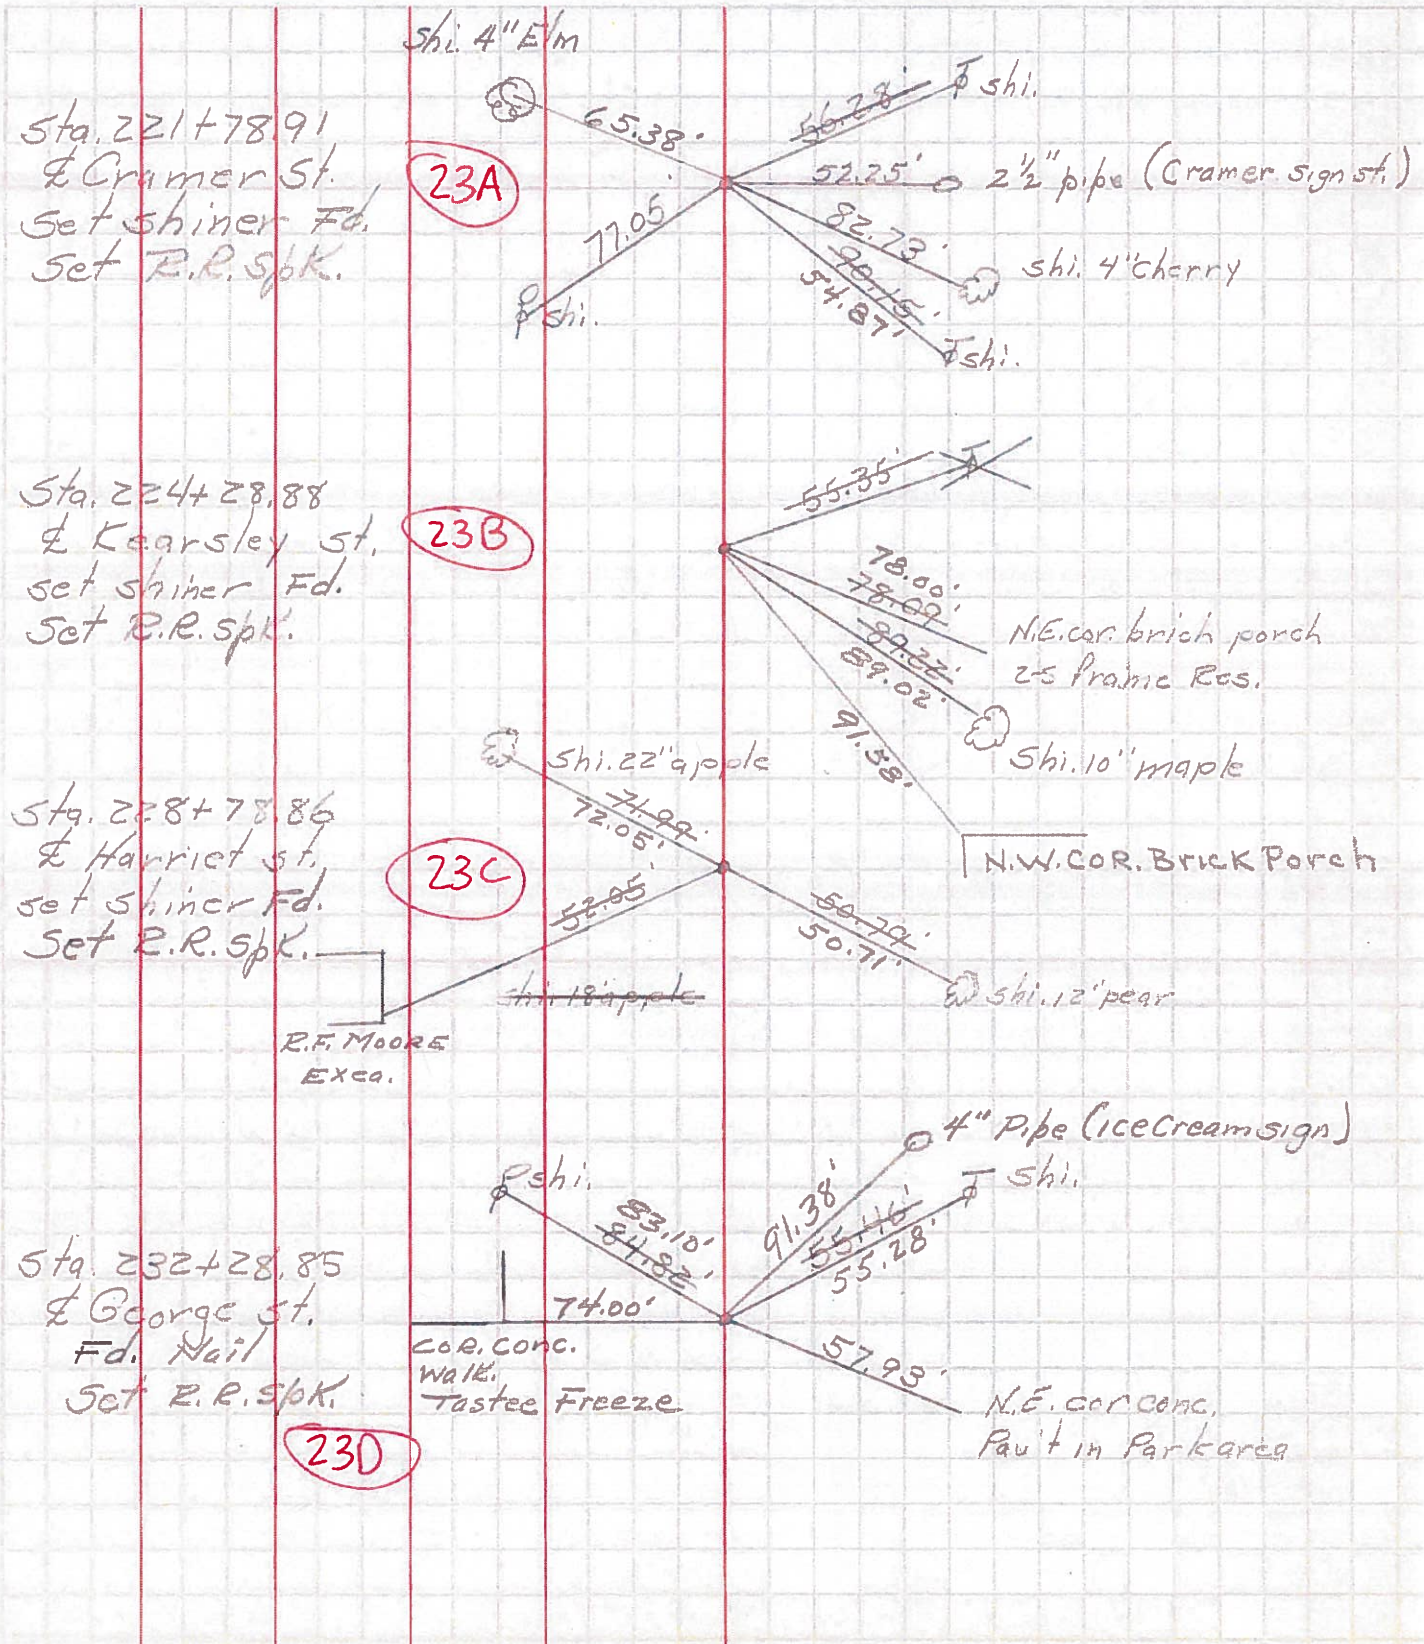 Shi. 4" Elm
Sta. 221+78.91
℄ Cramer St.
Set shiner Fd.
Set R.R. Spk.
23A
65.38'
77.05'
shi.
56.28'
shi.
52.25'
2½" pipe (Cramer sign st.)
82.73'
shi. 4" cherry
90.15'
54.87'
shi.
Sta. 224+28.88
℄ Kearsley St.
set shiner Fd.
Set R.R. Spk.
23B
55.35'
78.00'
78.09'
N.E. cor. brich porch
2-S Frame Res.
89.22'
89.02'
Shi. 10" maple
91.58'
N.W. COR. Brick Porch
Shi. 22" apple
71.99'
72.05'
Sta. 228+78.86
℄ Harriet St.
set shiner Fd.
Set R.R. Spk.
23C
52.05'
shi. 18" apple
R.F. MOORE
Exca.
50.79'
50.71'
Shi. 12" pear
4" Pipe (Ice Cream sign)
shi.
shi.
83.10'
84.82'
91.38'
55.46'
55.28'
Sta. 232+28.85
℄ George St.
Fd. Nail
Set R.R. Spk.
23D
74.00'
COR. Conc.
Walk.
Tastee Freeze
57.93'
N.E. cor conc.
Pav't in Park area